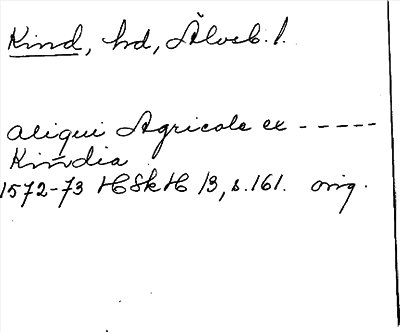 Kind, hd, Älvsb. l.
aliqui Agricole ex -----
Kindia
1572-73 HSkH 13, s. 161. orig.